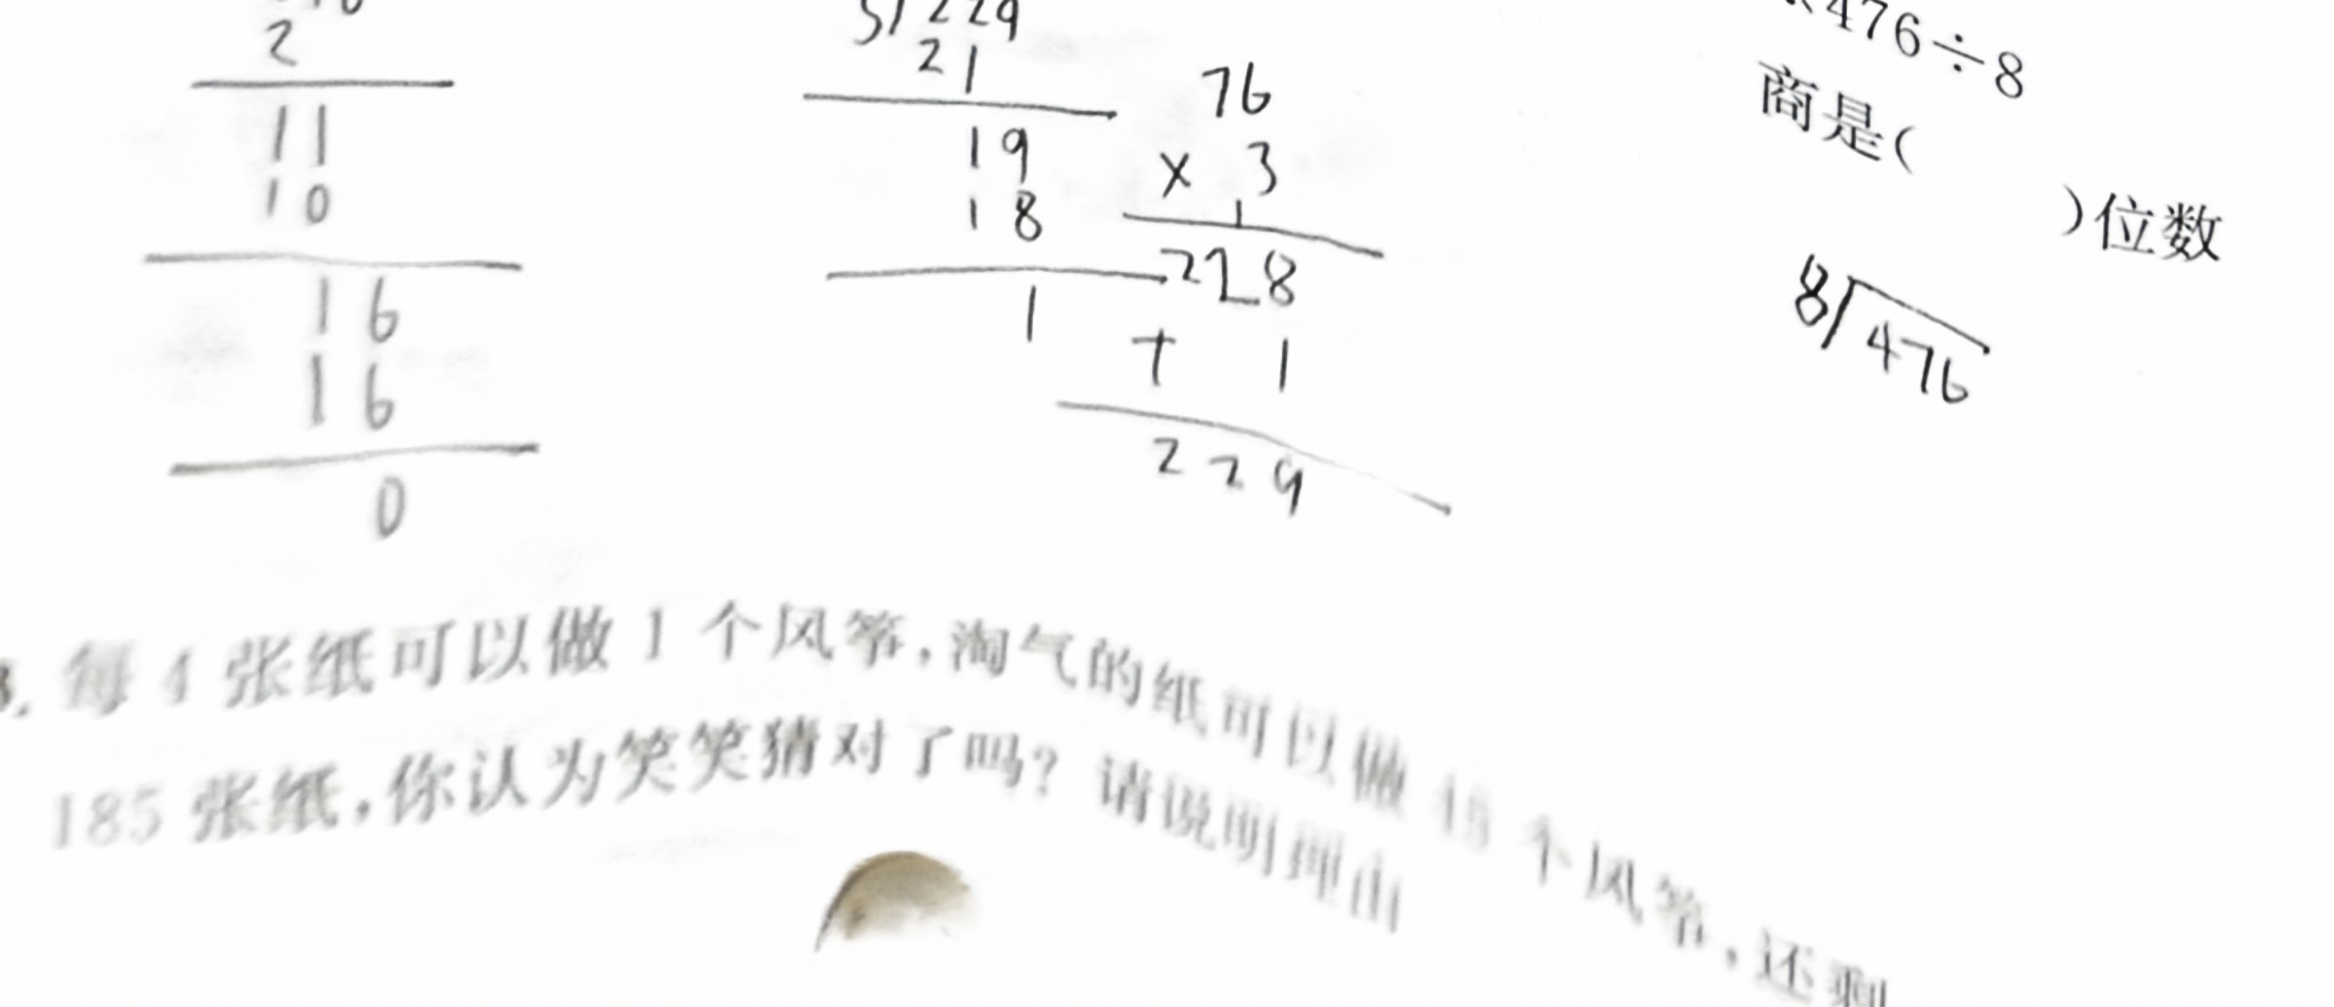 2
11
10
16
16
0
3/229
21
19
18
1
76
× 3
1
228
+ 1
229
476÷8
商是(
)位数
8/476
3. 每 4 张纸可以做 1 个风筝,淘气的纸可以做 个风筝,还剩
185 张纸,你认为笑笑猜对了吗? 请说明理由